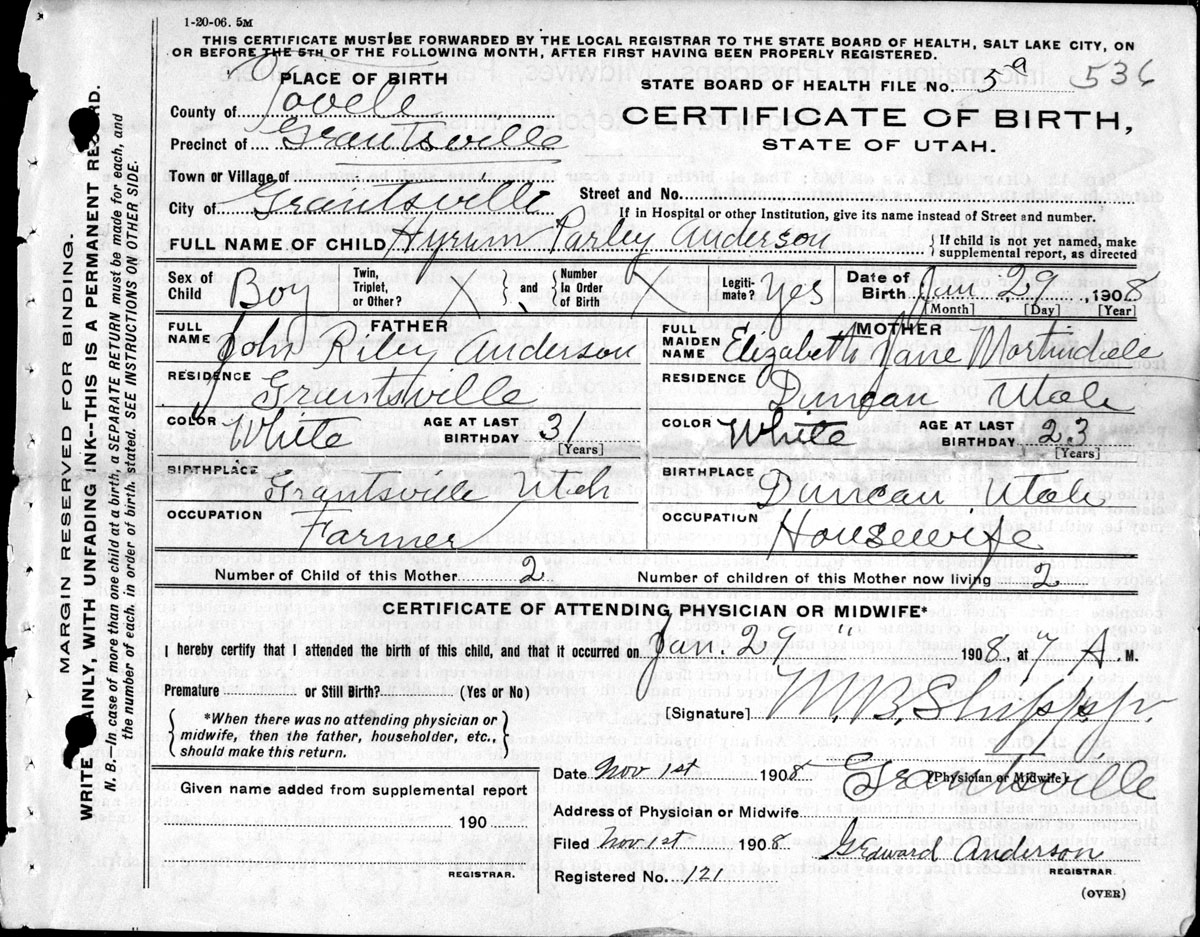 1-20-06. 5M
THIS CERTIFICATE MUST BE FORWARDED BY THE LOCAL REGISTRAR TO THE STATE BOARD OF HEALTH, SALT LAKE CITY, ON
OR BEFORE THE 5TH OF THE FOLLOWING MONTH, AFTER FIRST HAVING BEEN PROPERLY REGISTERED.
PLACE OF BIRTH
STATE BOARD OF HEALTH FILE No. 59 536
County of Tooele
CERTIFICATE OF BIRTH,
Precinct of Grantsville
STATE OF UTAH.
Town or Village of
City of Grantsville Street and No.
If in Hospital or other Institution, give its name instead of Street and number.
FULL NAME OF CHILD Hyrum Parley Anderson { If child is not yet named, make supplemental report, as directed
Sex of Child Boy Twin, Triplet, or Other? X } and { Number In Order of Birth X Legiti- mate? Yes Date of Birth Jan 29, 1908
[Month] [Day] [Year]
FATHER MOTHER
FULL NAME John Riley Anderson FULL MAIDEN NAME Elizabeth Jane Martindale
RESIDENCE Grantsville RESIDENCE Duncan Utah
COLOR White AGE AT LAST BIRTHDAY 31 [Years] COLOR White AGE AT LAST BIRTHDAY 23 [Years]
BIRTHPLACE Grantsville Utah BIRTHPLACE Duncan Utah
OCCUPATION Farmer OCCUPATION Housewife
Number of Child of this Mother 2 Number of children of this Mother now living 2
CERTIFICATE OF ATTENDING PHYSICIAN OR MIDWIFE*
I hereby certify that I attended the birth of this child, and that it occurred on Jan. 29 " 1908, at 7 A. M.
Premature or Still Birth? (Yes or No)
[Signature] W. B. Shipp Jr.
{ *When there was no attending physician or midwife, then the father, householder, etc., should make this return. }
Date Nov 1st 1908 (Physician or Midwife)
Given name added from supplemental report
Grantsville
Address of Physician or Midwife
190
Filed Nov 1st 1908 Edward Anderson
REGISTRAR. Registered No. 121 REGISTRAR.
(OVER)
MARGIN RESERVED FOR BINDING.
WRITE AINLY, WITH UNFADING INK--THIS IS A PERMANENT RE RD.
N. B.—In case of more than one child at a birth, a SEPARATE RETURN must be made for each, and
the number of each, in order of birth, stated. SEE INSTRUCTIONS ON OTHER SIDE.